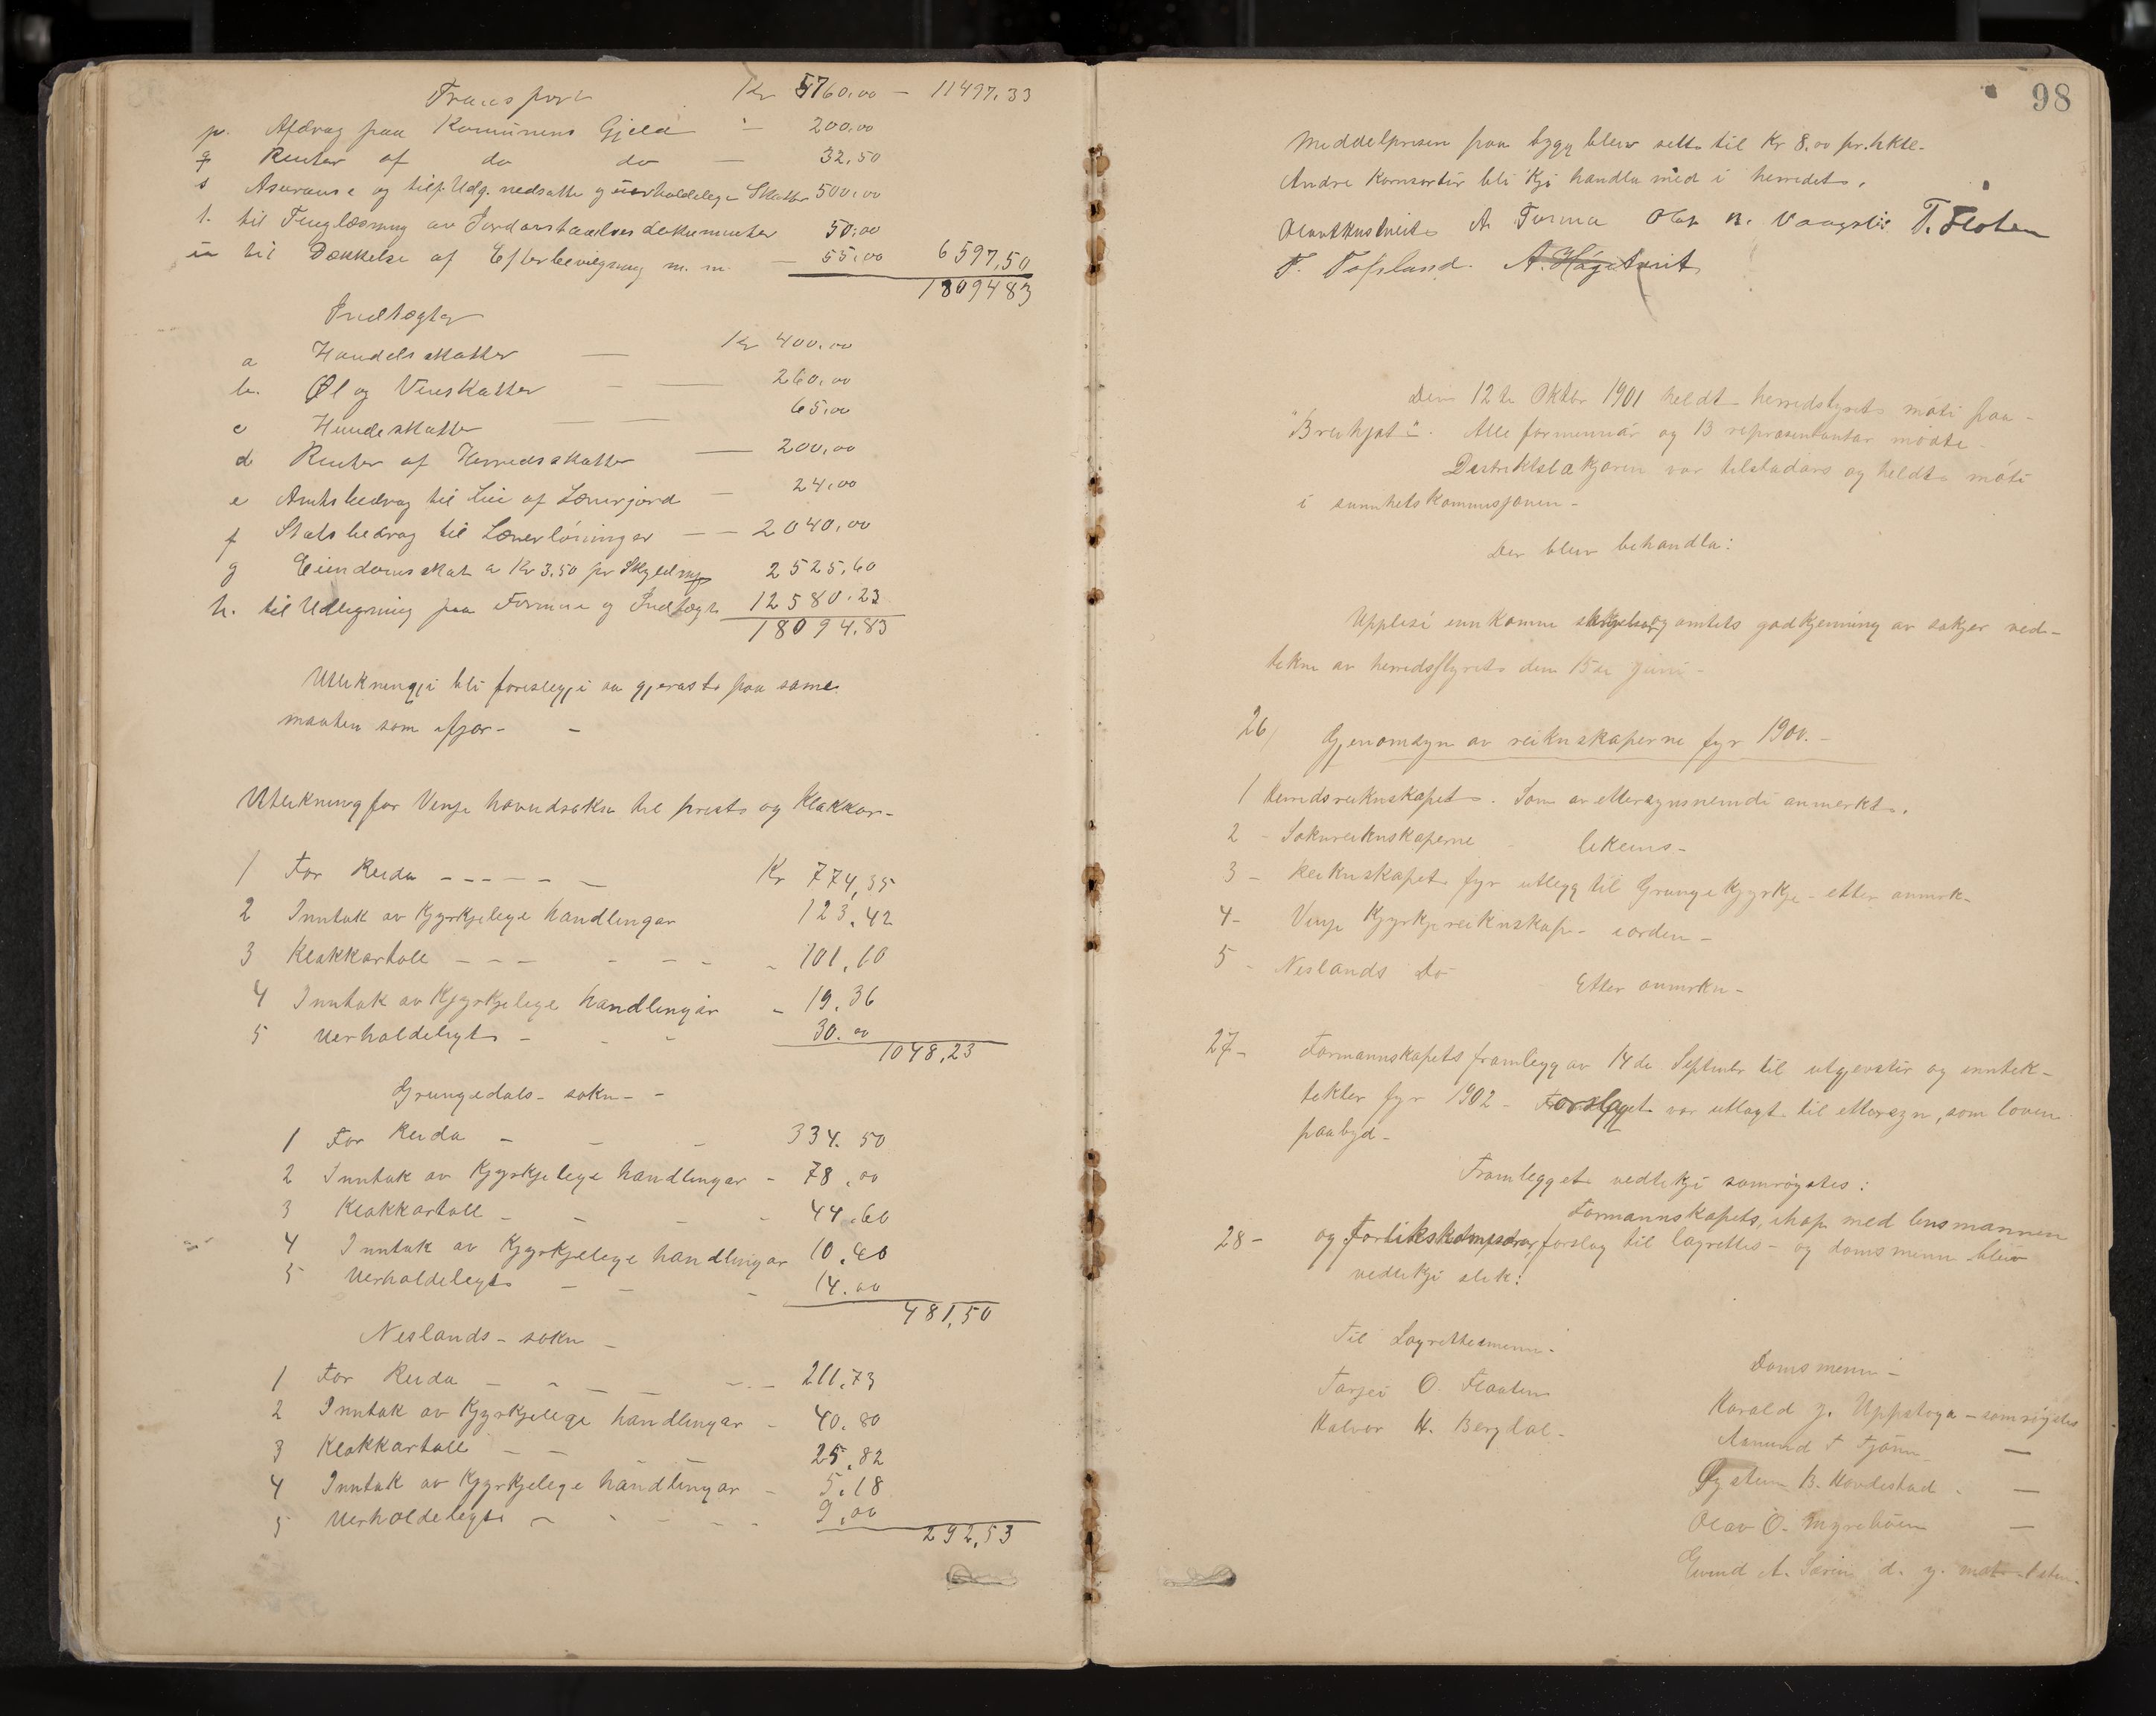 Transport Kr 5760,00 – 11497,33
p. Afdrag paa Komunens Gjeld – 200,00
q Renter af do do – 32,50
s Asuranse og tilf. Udg. nedsatte og uerholdelege Skatter 500,00
t. til Tinglæsning av Jordavstaaelses dokumenter 50,00
u til Dækkelse af Efterbevilgning m. m. – 55,00 6597,50
1809483
Indtægter
a Handelsskatter – Kr 400,00
b. Øl og Vinskatter – 260,00
c Hundeskatter – 65,00
d Renter af Herredsskatter – 200,00
e Amtsbidrag til Leie af Lærerjord – 24,00
f Statsbidrag til Lærerlöninger – – 2040,00
g Eiendomsskat a Kr 3,50 pr Skyldmk 2525,60
h. til Udligning paa Formue og Indtægt 12580.23
18094,83
Utlikningji bli foreslegji aa gjerast paa same
maaten som ifjor –
Utlikning for Vinje hovudsokn til prest og Klakkar –
1 For Reida – – – – – Kr 774,35
2 Inntak av Kyrkjelege handlingar 123,42
3 Klakkartoll – – – – – – 101,10
4 Inntak av Kyrkjelege handlingar – 19,36
5 Uerholdelegt – – – 30.00
1048,23
Grungedals – sokn – –
1 For Reida – – – 334.50
2 Inntak av Kyrkjelege handlingar – 78,00
3 Klakkartoll – – – – 44,60
4 Inntak av Kyrkjelege handlingar 10.40
5 Uerholdelegt – – – 14.00
481,50
Neslands – sokn –
1 For Reida – – – – – 211,73
2 Inntak av Kyrkjelege handlingar – 40.80
3 Klakkartoll – – 25,82
4 Inntak av Kyrkjelege handlingar – 5,18
5 Uerholdelegt – – – – 9,00
292,53
98
Middelprisen paa bygg bleiv sett til Kr 8,00 pr. hktl.
Andre Kornsortir bli kji handla med i herredet.
A. Turma Olav N. Vaagsli T. Floten
T. Tofsland. A. Högetveit
Den 12te Oktbr 1901 heldt herredstyret möti paa –
"Breihjat". Alle formennar og 13 representantar mödte –
Distriktslækjaren var tilstadars og heldt möti
i sunnhetskommisjonen –
Der bleiv behandla:
Upplesi innkomne og amtets godkjenning av sakjer ved–
tekne av herredsstyret den 15de Juni –
26/ Gjenomsyn av reiknskaperne fyr 1900. –
1 Herredsreiknskapet. Som av ettersynsnemdi anmerkt.
2 – Soknereiknskaperne – likeins –
3 – Reiknskapet fyr utlegg til Grunge Kyrkje – etter anmrk –
4 – Vinje Kyrkjereiknskap – iorden –
5 – Neslands Do Etter anmrkn –
27 – Formannskapets framlegg av 14de Septmbr til utgjevstir og inntek–
tekter fyr 1902 – Forslaget var utlagt til ettersyn, som loven
paabyd –
Framlegget vedtekji samröystes:
Formannskapets, ihop med lensmannen
28 – og forlikskommissærar forslag til lagrettes – og domsmenn bleiv
vedtekji slik:
Til Lagrettesmenn:
Tarjei O. Flaaten
Halvor H. Bergdal –
Domsmenn –
Harald G. Uppstoga – samröystes
Aamund T Tjönn –
Öystein B. Hovdestad – –
Olav O. Myrebøen –
Eivind A. d. y. mot 1 stem.